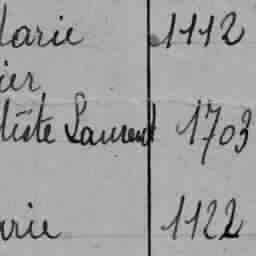 larie 1112
ier
tiste Laurent 1703
arie 1122